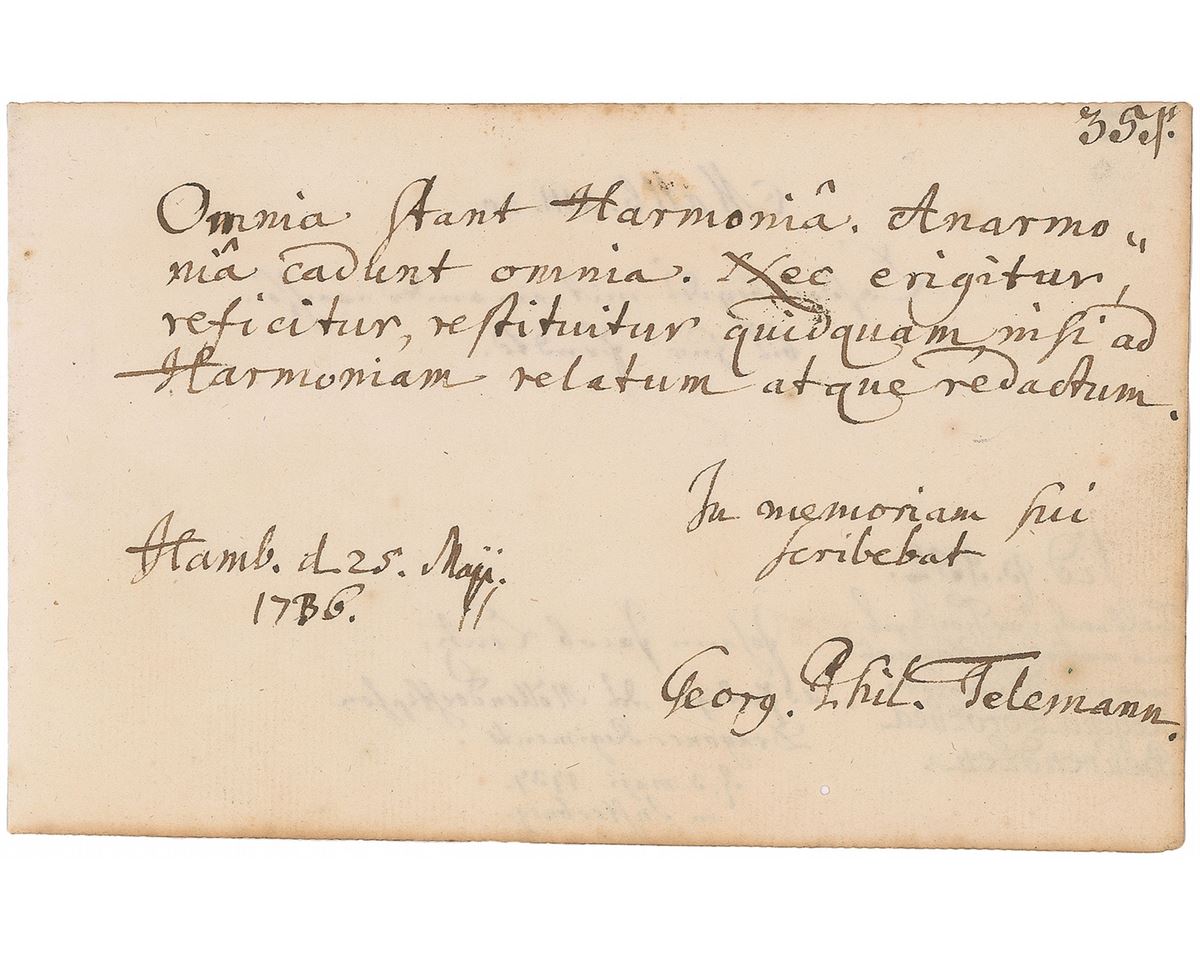 355.
Omnia stant Harmoniâ. Anarmo„
niâ cadunt omnia. Nec erigitur,
reficitur, restituitur quidquam, nisi ad
Harmoniam relatum atque redactum.
In memoriam sui
scribebat
Hamb. d. 25. Maji.
1736.
Georg. Phil. Telemann.